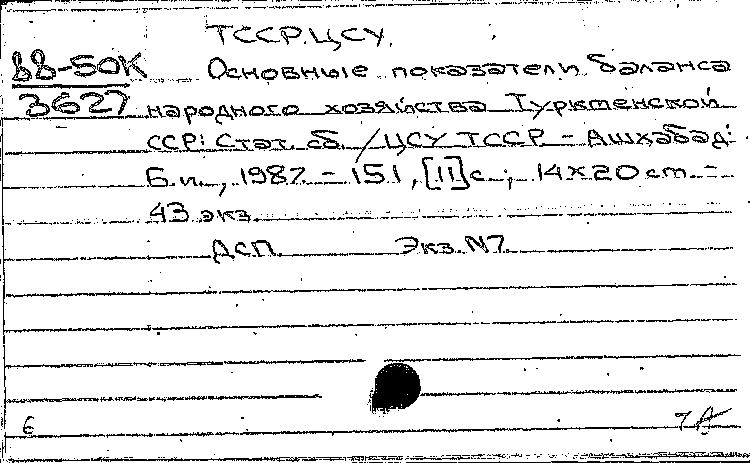 ТССР. ЦСУ.
88-50К Основные показатели баланса
3627 народного хозяйства Туркменской
ССР: Стат. сб. / ЦСУ ТССР - Ашхабад:
Б.и., 1987. - 151, [II] с.; 14х20 cm. -
43 экз.
ДСП. Экз. N7.
6